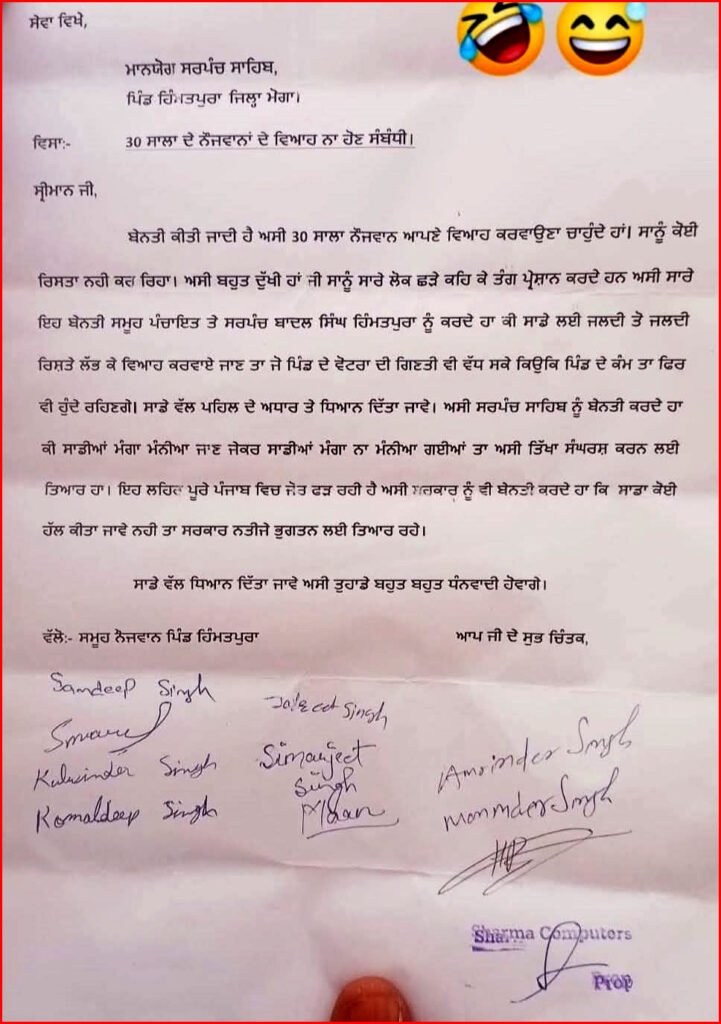 ਸੇਵਾ ਵਿਖੇ,
ਮਾਨਯੋਗ ਸਰਪੰਚ ਸਾਹਿਬ,
ਪਿੰਡ ਹਿੰਮਤਪੁਰਾ ਜਿਲ੍ਹਾ ਮੋਗਾ।
ਵਿਸਾ:- 30 ਸਾਲਾ ਦੇ ਨੌਜਵਾਨਾਂ ਦੇ ਵਿਆਹ ਨਾ ਹੋਣ ਸੰਬੰਧੀ।
ਸ੍ਰੀਮਾਨ ਜੀ,
ਬੇਨਤੀ ਕੀਤੀ ਜਾਦੀ ਹੈ ਅਸੀ 30 ਸਾਲਾ ਨੌਜਵਾਨ ਆਪਣੇ ਵਿਆਹ ਕਰਵਾਉਣਾ ਚਾਹੁੰਦੇ ਹਾਂ। ਸਾਨੂੰ ਕੋਈ
ਰਿਸਤਾ ਨਹੀ ਕਰ ਰਿਹਾ। ਅਸੀ ਬਹੁਤ ਦੁੱਖੀ ਹਾਂ ਜੀ ਸਾਨੂੰ ਸਾਰੇ ਲੋਕ ਛੜੇ ਕਹਿ ਕੇ ਤੰਗ ਪ੍ਰੇਸ਼ਾਨ ਕਰਦੇ ਹਨ ਅਸੀ ਸਾਰੇ
ਇਹ ਬੇਨਤੀ ਸਮੂਹ ਪੰਚਾਇਤ ਤੇ ਸਰਪੰਚ ਬਾਦਲ ਸਿੰਘ ਹਿੰਮਤਪੁਰਾ ਨੂੰ ਕਰਦੇ ਹਾ ਕੀ ਸਾਡੇ ਲਈ ਜਲਦੀ ਤੋ ਜਲਦੀ
ਰਿਸ਼ਤੇ ਲੱਭ ਕੇ ਵਿਆਹ ਕਰਵਾਏ ਜਾਣ ਤਾ ਜੋ ਪਿੰਡ ਦੇ ਵੋਟਰਾ ਦੀ ਗਿਣਤੀ ਵੀ ਵੱਧ ਸਕੇ ਕਿਉਕਿ ਪਿੰਡ ਦੇ ਕੰਮ ਤਾ ਫਿਰ
ਵੀ ਹੁੰਦੇ ਰਹਿਣਗੇ। ਸਾਡੇ ਵੱਲ ਪਹਿਲ ਦੇ ਅਧਾਰ ਤੇ ਧਿਆਨ ਦਿੱਤਾ ਜਾਵੇ। ਅਸੀ ਸਰਪੰਚ ਸਾਹਿਬ ਨੂੰ ਬੇਨਤੀ ਕਰਦੇ ਹਾ
ਕੀ ਸਾਡੀਆਂ ਮੰਗਾ ਮੰਨੀਆ ਜਾਣ ਜੇਕਰ ਸਾਡੀਆਂ ਮੰਗਾ ਨਾ ਮੰਨੀਆ ਗਈਆਂ ਤਾ ਅਸੀ ਤਿੱਖਾ ਸੰਘਰਸ਼ ਕਰਨ ਲਈ
ਤਿਆਰ ਹਾ। ਇਹ ਲਹਿਰ ਪੂਰੇ ਪੰਜਾਬ ਵਿਚ ਜੋਰ ਫੜ ਰਹੀ ਹੈ ਅਸੀ ਸਰਕਾਰ ਨੂੰ ਵੀ ਬੇਨਤੀ ਕਰਦੇ ਹਾ ਕਿ ਸਾਡਾ ਕੋਈ
ਹੱਲ ਕੀਤਾ ਜਾਵੇ ਨਹੀ ਤਾ ਸਰਕਾਰ ਨਤੀਜੇ ਭੁਗਤਨ ਲਈ ਤਿਆਰ ਰਹੇ।
ਸਾਡੇ ਵੱਲ ਧਿਆਨ ਦਿੱਤਾ ਜਾਵੇ ਅਸੀ ਤੁਹਾਡੇ ਬਹੁਤ ਬਹੁਤ ਧੰਨਵਾਦੀ ਹੋਵਾਗੇ।
ਵੱਲੋ:- ਸਮੂਹ ਨੋਜਵਾਨ ਪਿੰਡ ਹਿੰਮਤਪੁਰਾ ਆਪ ਜੀ ਦੇ ਸੁਭ ਚਿੰਤਕ,
Sandeep Singh
Singh
Kulwinder Singh
Simarjeet
Singh
Komaldeep Singh
Amrinder Singh
Maninder Singh
Sharma Computers
Prop